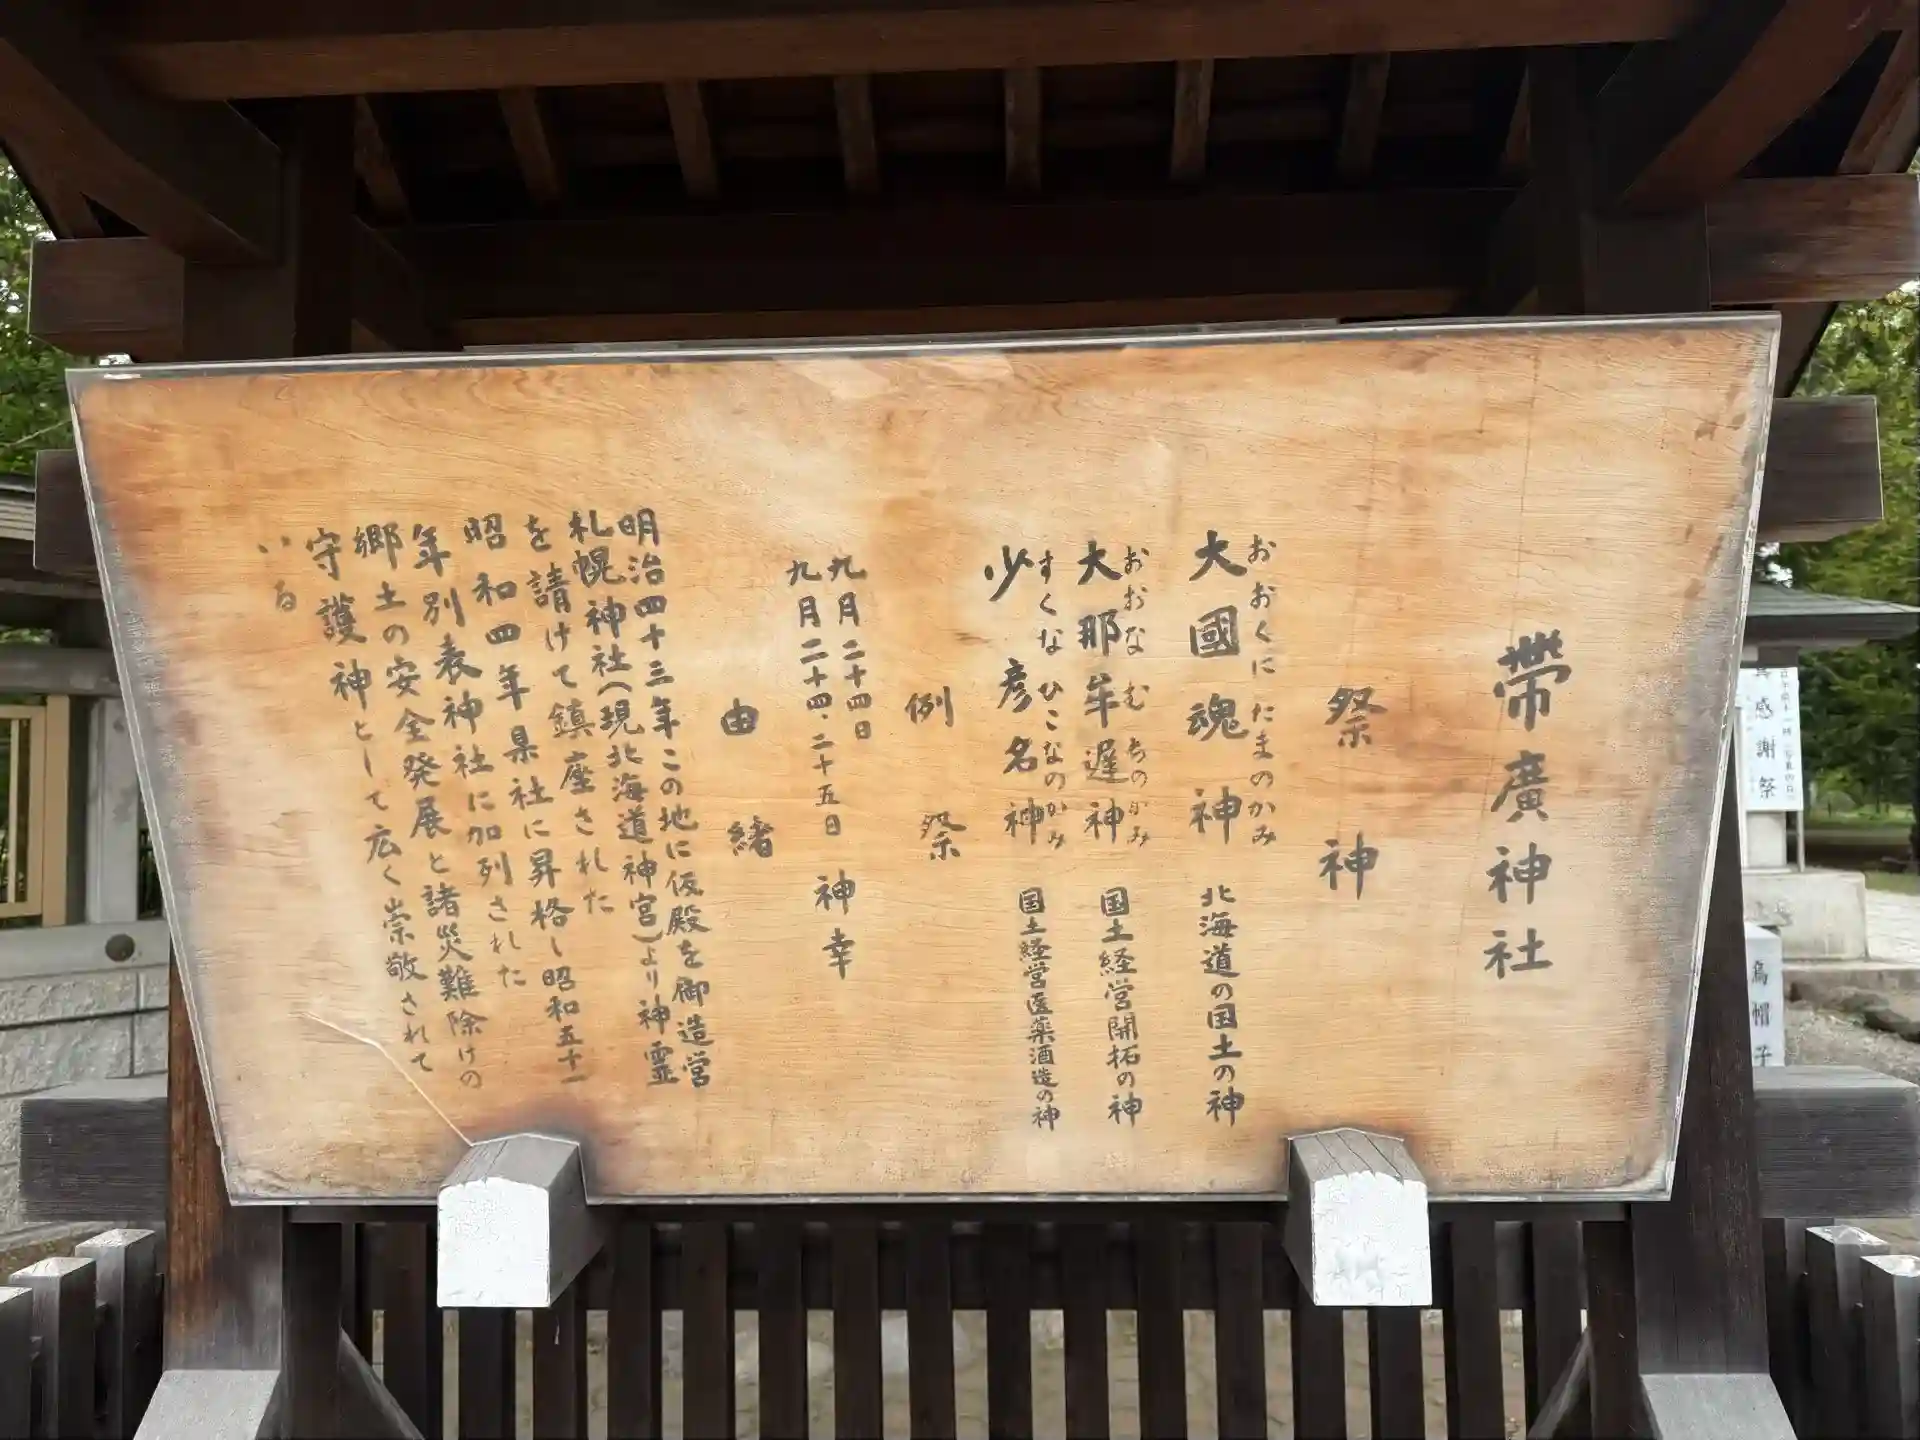 帶廣神社
祭神
おおくにたまのかみ
大國魂神 北海道の国土の神
おおなむちのかみ
大那牟遅神 国土経営開拓の神
すくなひこなのかみ
少彦名神 国土経営医薬酒造の神
例祭
九月二十四日
九月二十四、二十五日 神幸
由緒
明治四十三年この地に仮殿を御造営
札幌神社(現北海道神宮)より神霊
を請けて鎮座された
昭和四年県社に昇格し昭和五十一
年別表神社に加列された
郷土の安全発展と諸災難除けの
守護神として広く崇敬されて
いる
感謝祭
烏帽子